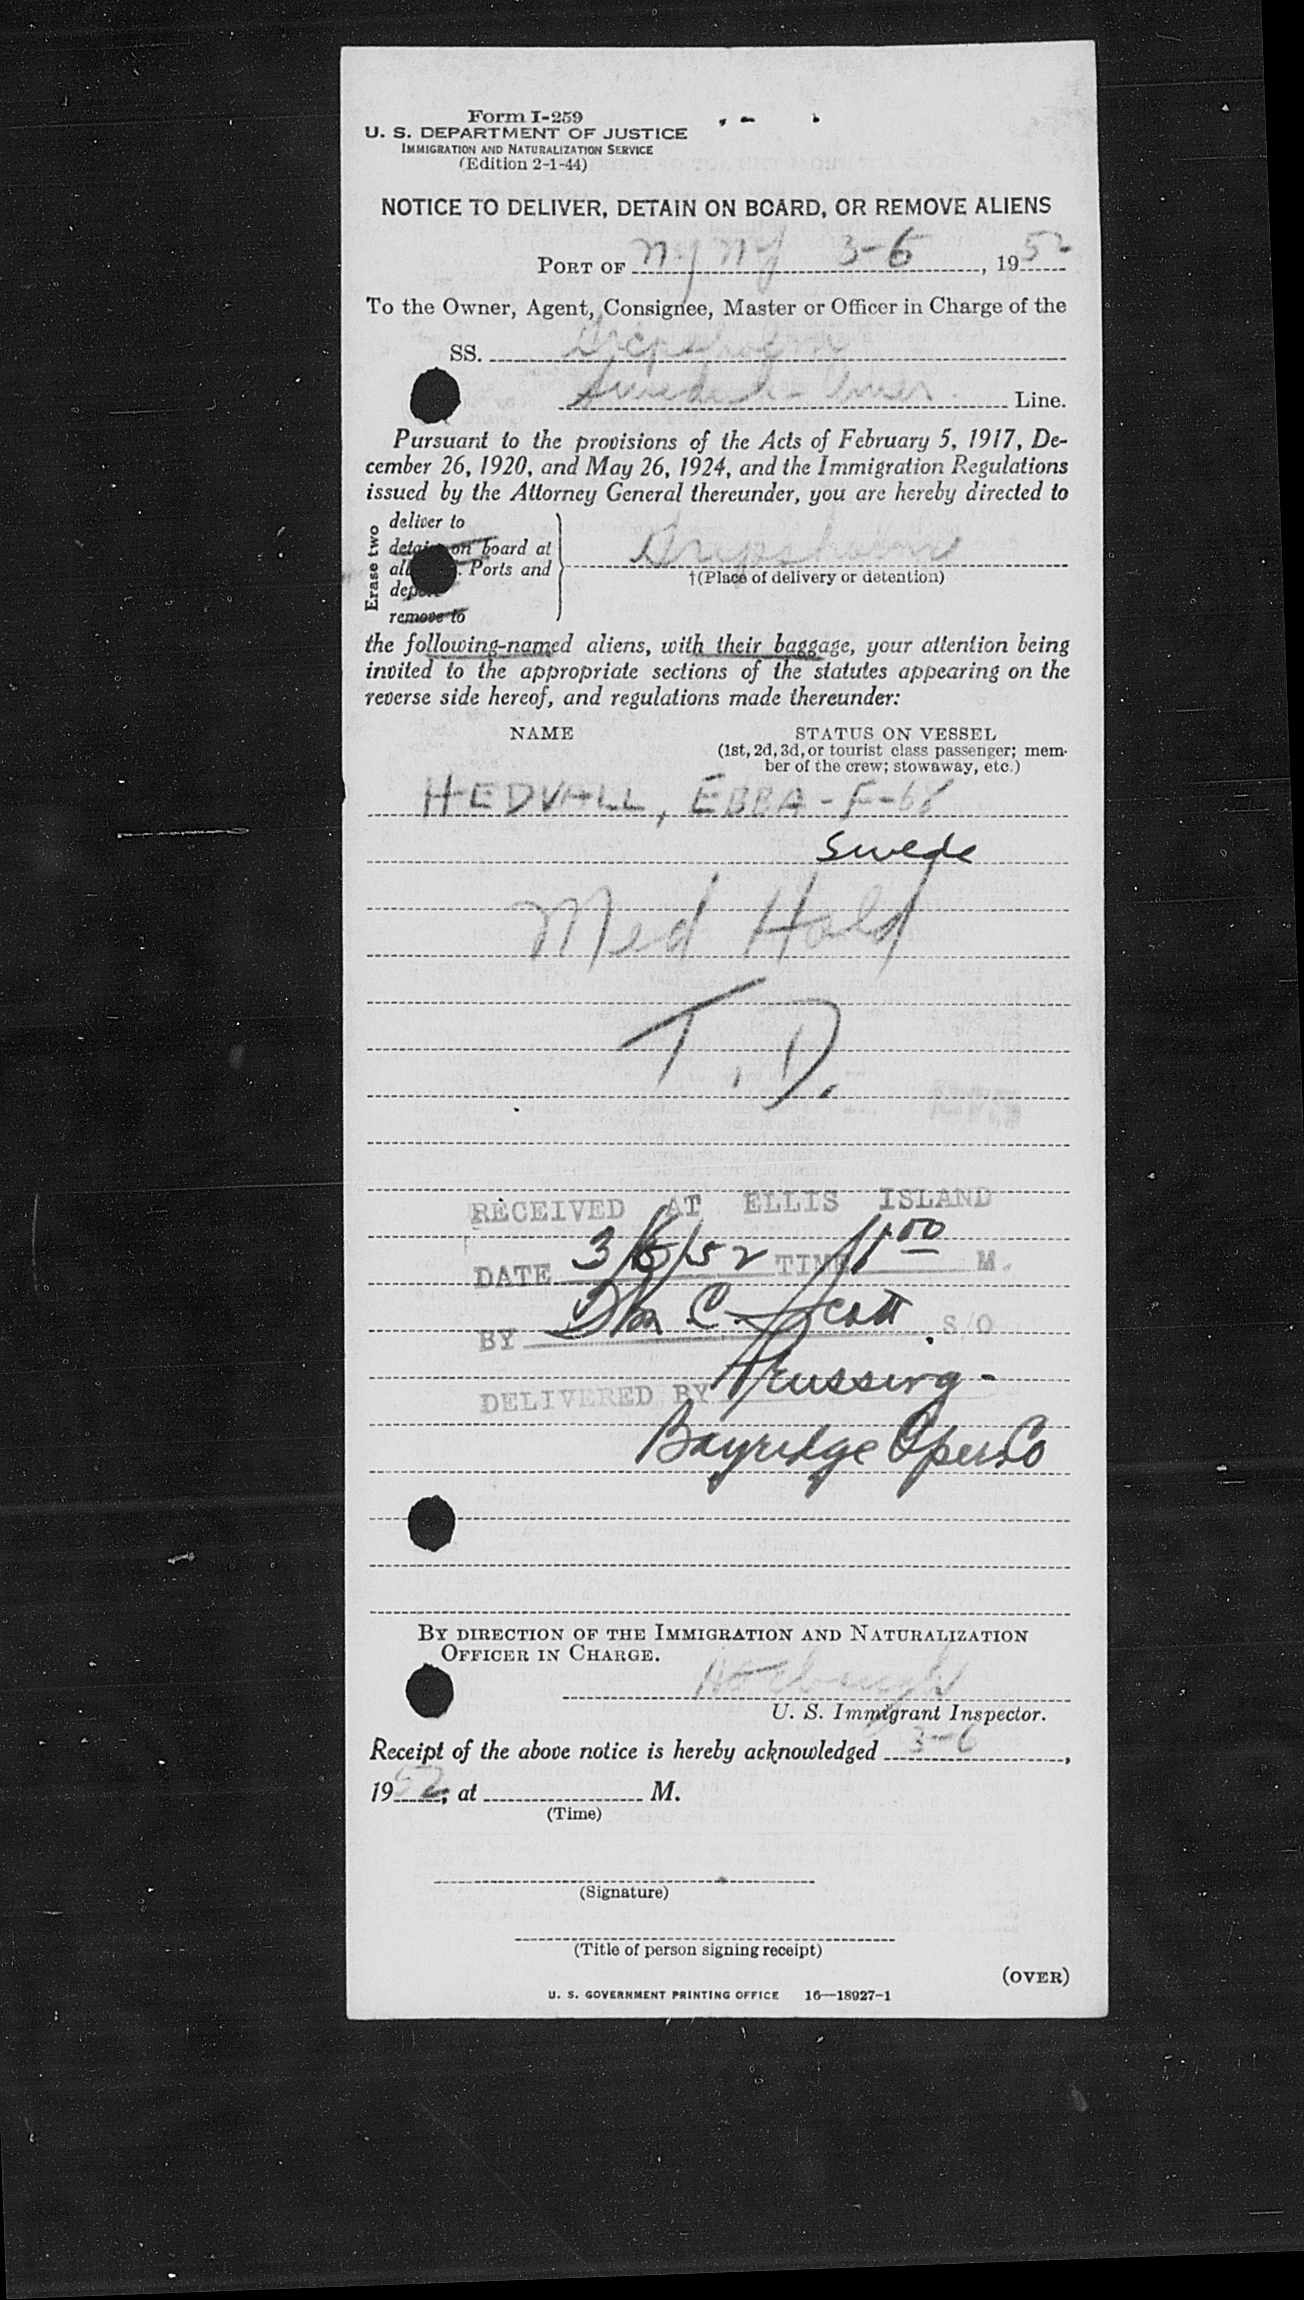 Form I-259
U. S. DEPARTMENT OF JUSTICE
IMMIGRATION AND NATURALIZATION SERVICE
(Edition 2-1-44)
NOTICE TO DELIVER, DETAIN ON BOARD, OR REMOVE ALIENS
PORT OF NY NY 3-6, 1952
To the Owner, Agent, Consignee, Master or Officer in Charge of the
SS. Gripsholm
Swedish-Amer. Line.
Pursuant to the provisions of the Acts of February 5, 1917, De-
cember 26, 1920, and May 26, 1924, and the Immigration Regulations
issued by the Attorney General thereunder, you are hereby directed to
Erase two
deliver to
detain on board at
all . Ports and
remove to
Gripsholm
†(Place of delivery or detention)
the following-named aliens, with their baggage, your attention being
invited to the appropriate sections of the statutes appearing on the
reverse side hereof, and regulations made thereunder:
NAME STATUS ON VESSEL
(1st, 2d, 3d, or tourist class passenger; mem-
ber of the crew; stowaway, etc.)
HEDVALL, EBBA - F-68
Swede
Med Hold
T.D.
RECEIVED AT ELLIS ISLAND
DATE 3/6/52 TIME 1 00 M.
BY Wm C. Scott S/O
DELIVERED BY Krussing -
Bayridge Oper. Co
BY DIRECTION OF THE IMMIGRATION AND NATURALIZATION
OFFICER IN CHARGE.
U. S. Immigrant Inspector.
Receipt of the above notice is hereby acknowledged 3-6,
1952, at M.
(Time)
(Signature)
(Title of person signing receipt)
(OVER)
U. S. GOVERNMENT PRINTING OFFICE 16—18927-1